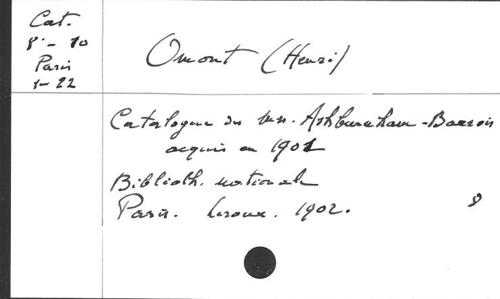 Cat.
8° - 10
Paris
1-22
Omont (Henri)
Catalogue des mss. Ashburnham-Barrois
acquis en 1901
Biblioth. nationale
Paris. Leroux. 1902.
8